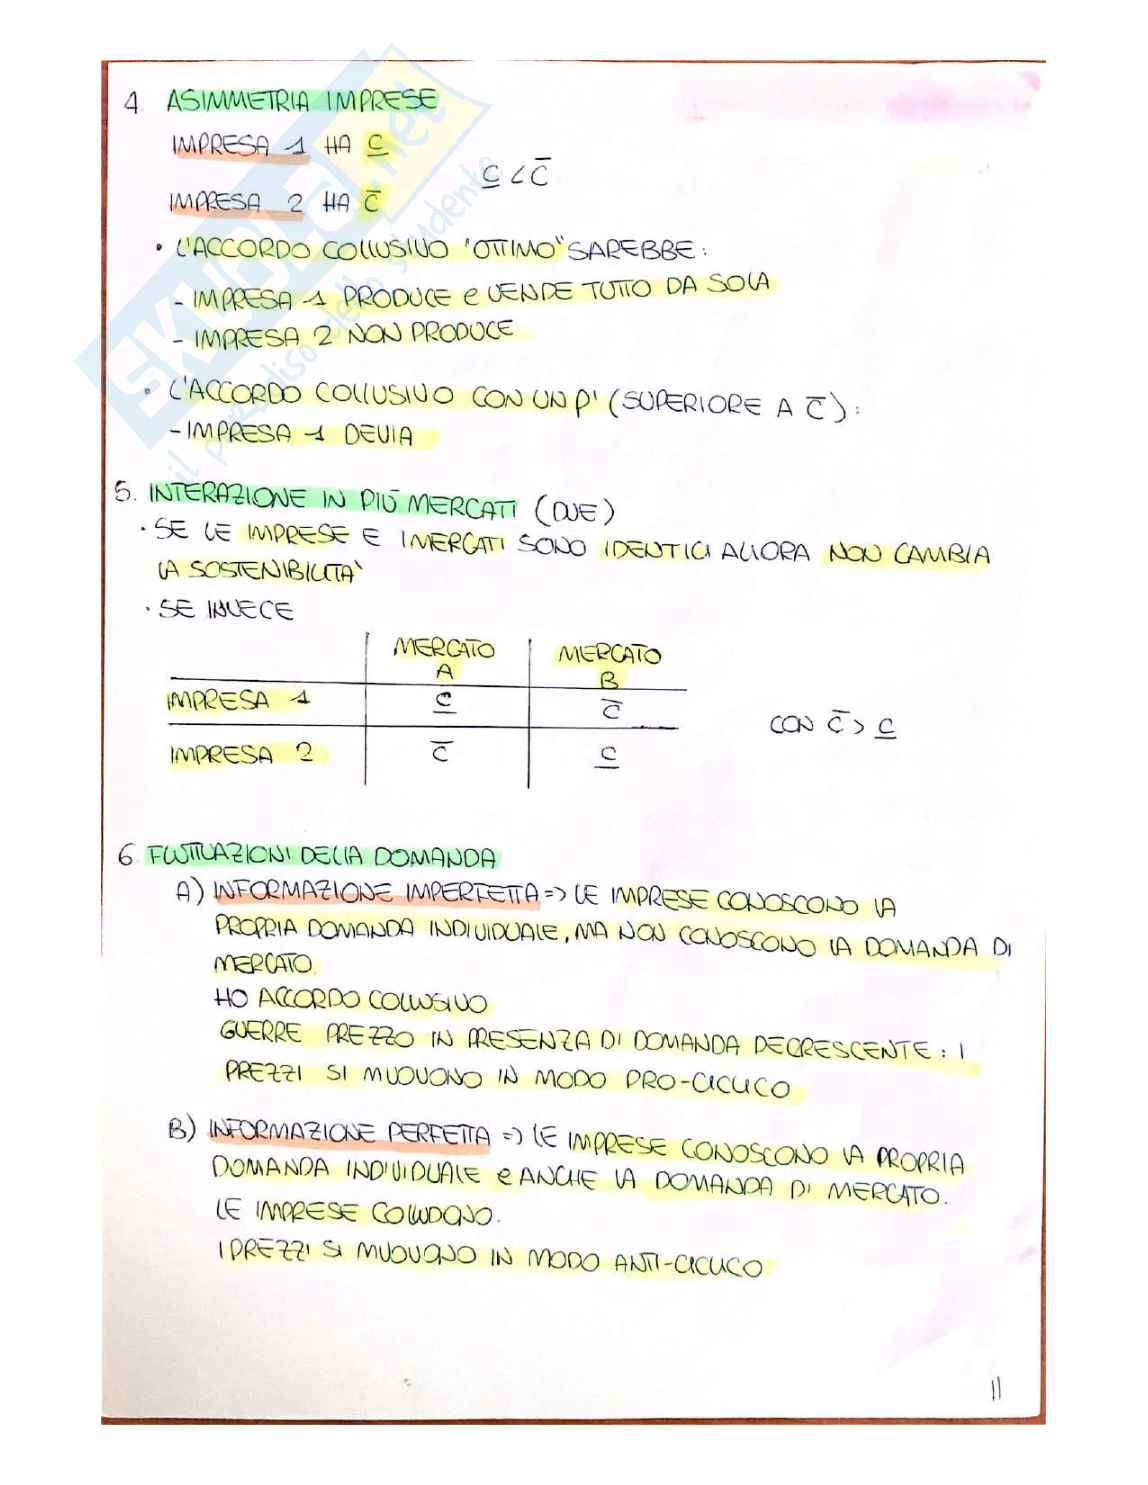 4. ASIMMETRIA IMPRESE
IMPRESA 1 HA c̲
c̲ < c̅
IMPRESA 2 HA c̅
• L'ACCORDO COLLUSIVO "OTTIMO" SAREBBE:
- IMPRESA 1 PRODUCE e VENDE TUTTO DA SOLA
- IMPRESA 2 NON PRODUCE
• L'ACCORDO COLLUSIVO CON UN P' (SUPERIORE A c̅):
- IMPRESA 1 DEVIA
5. INTERAZIONE IN PIÙ MERCATI (DUE)
• SE LE IMPRESE E I MERCATI SONO IDENTICI ALLORA NON CAMBIA
LA SOSTENIBILITA'
• SE INVECE
MERCATO A MERCATO B
IMPRESA 1 c̲ c̅
CON c̅ > c̲
IMPRESA 2 c̅ c̲
6 FLUTTUAZIONI DELLA DOMANDA
A) INFORMAZIONE IMPERFETTA => LE IMPRESE CONOSCONO LA
PROPRIA DOMANDA INDIVIDUALE, MA NON CONOSCONO LA DOMANDA DI
MERCATO.
HO ACCORDO COLLUSIVO
GUERRE PREZZO IN PRESENZA DI DOMANDA DECRESCENTE: I
PREZZI SI MUOVONO IN MODO PRO-CICLICO
B) INFORMAZIONE PERFETTA => LE IMPRESE CONOSCONO LA PROPRIA
DOMANDA INDIVIDUALE e ANCHE LA DOMANDA DI MERCATO.
LE IMPRESE COLLUDONO.
I PREZZI SI MUOVONO IN MODO ANTI-CICLICO
11
SKUOLA.net
il paradiso dello studente